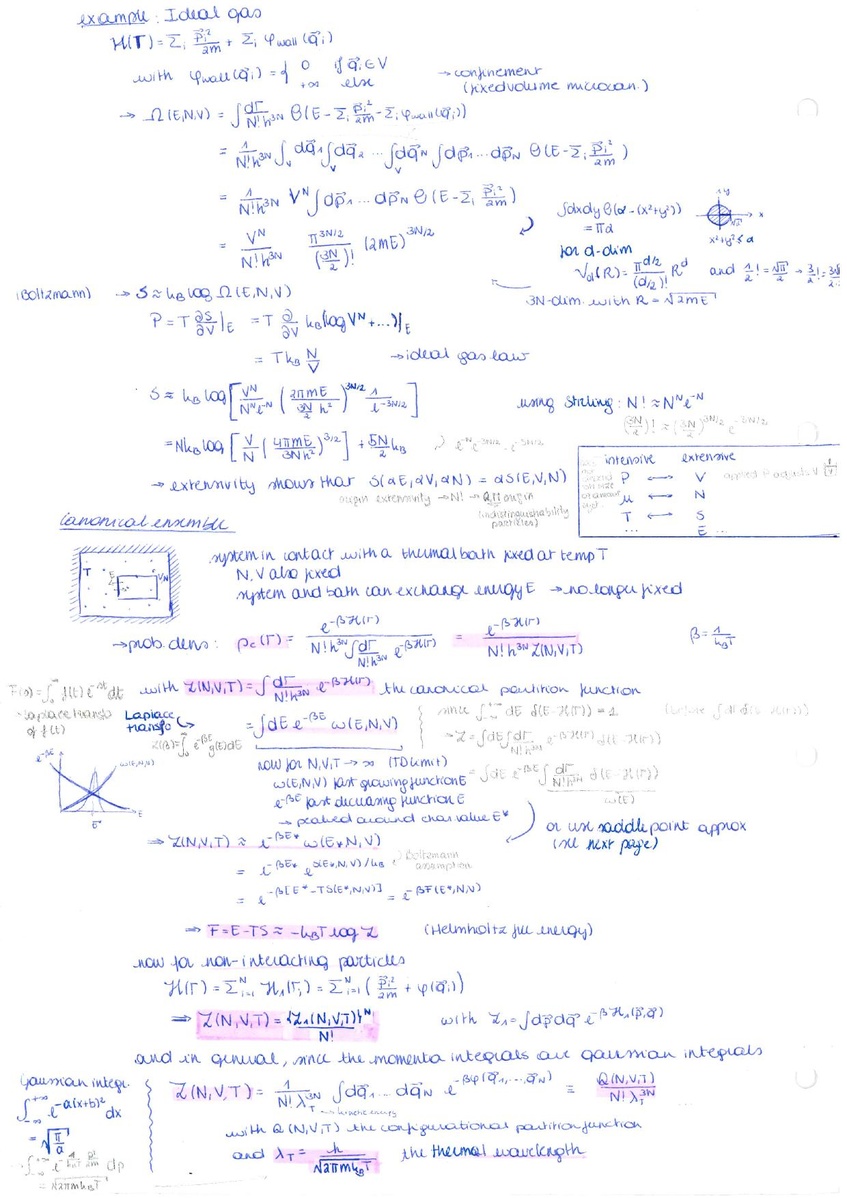 example: Ideal gas
H(Γ) = Σᵢ p⃗ᵢ²/2m + Σᵢ φwall(q⃗ᵢ)
with φwall(q⃗ᵢ) = { 0 if q⃗ᵢ∈V
+∞ else
→ confinement
(fixed volume microcan.)
→ Ω(E,N,V) = ∫ dΓ/N!h³ᴺ Θ(E - Σᵢ p⃗ᵢ²/2m - Σᵢ φwall(q⃗ᵢ))
= 1/N!h³ᴺ ∫_V dq⃗₁ ∫_V dq⃗₂ ... ∫_V dq⃗_N ∫dp⃗₁...dp⃗_N Θ(E - Σᵢ p⃗ᵢ²/2m)
= 1/N!h³ᴺ Vᴺ ∫dp⃗₁...dp⃗_N Θ(E - Σᵢ p⃗ᵢ²/2m)
= Vᴺ/N!h³ᴺ π^(3N/2)/(3N/2)! (2mE)^(3N/2)
∫dxdy Θ(α - (x²+y²))
= πα
x²+y² ≤ α
for d-dim
Vd(R) = π^(d/2)/(d/2)! R^d and 1/2! = √π/2
3N-dim. with R = √2mE
(Boltzmann) → S ≈ k_B log Ω(E,N,V)
P = T ∂S/∂V|_E = T ∂/∂V k_B(log Vᴺ + ...)|_E
= T k_B N/V → ideal gas law
S ≈ k_B log[Vᴺ/Nᴺe⁻ᴺ (2πmE/(3N/2 h²))^(3N/2) 1/e^(-3N/2)]
using Stirling: N! ≈ Nᴺe⁻ᴺ
(3N/2)! ≈ (3N/2)^(3N/2) e^(-3N/2)
= Nk_B log[V/N (4πmE/3Nh²)^(3/2)] + 5N/2 k_B
→ extensivity shows that S(αE,αV,αN) = αS(E,V,N)
origin extensivity → N! → QM origin
(indistinguishability
particles)
intensive extensive
P ↔ V
μ ↔ N
T ↔ S
... E ...
Canonical ensemble
T E V,N
system in contact with a thermal bath fixed at temp T
N,V also fixed
system and bath can exchange energy E → no longer fixed
→ prob. dens: ρc(Γ) = e^(-βH(Γ)) / N!h³ᴺ ∫ dΓ/N!h³ᴺ e^(-βH(Γ)) = e^(-βH(Γ)) / N!h³ᴺ Z(N,V,T)
β = 1/k_BT
F(s) = ∫₀^∞ f(t) e^(-st) dt
→ laplace transfo
of f(t)
with Z(N,V,T) = ∫ dΓ/N!h³ᴺ e^(-βH(Γ)) the canonical partition function
Laplace
transfo
Z(β) = ∫₀^∞ e^(-βE) g(E) dE
= ∫dE e^(-βE) ω(E,N,V)
since ∫ dE δ(E-H(Γ)) = 1
→ Z = ∫dE ∫ dΓ/N!h³ᴺ e^(-βH(Γ)) δ(E-H(Γ))
= ∫dE e^(-βE) ∫ dΓ/N!h³ᴺ δ(E-H(Γ))
ω(E)
e^(-βE) ω(E,N,V)
E* E
now for N,V,T → ∞ (TD limit)
ω(E,N,V) fast growing function E
e^(-βE) fast decreasing function E
→ peaked around char value E*
or use saddle point approx
(see next page)
⇒ Z(N,V,T) ≈ e^(-βE*) ω(E*,N,V)
= e^(-βE*) e^(S(E*,N,V)/k_B)
Boltzmann
assumption
= e^(-β[E*-TS(E*,N,V)]) = e^(-βF(E*,N,V))
⇒ F = E-TS ≈ -k_BT log Z (Helmholtz free energy)
now for non-interacting particles
H(Γ) = Σᵢ₌₁ᴺ H₁(Γᵢ) = Σᵢ₌₁ᴺ (p⃗ᵢ²/2m + φ(q⃗ᵢ))
⇒ Z(N,V,T) = {Z₁(N,V,T)}ᴺ/N! with Z₁ = ∫dp⃗dq⃗ e^(-βH₁(p⃗,q⃗))
and in general, since the momenta integrals are gaussian integrals
Gaussian integr.
∫₋∞^+∞ e^(-a(x+b)²) dx
= √(π/a)
= √2πmk_BT
Z(N,V,T) = 1/N!λ_T³ᴺ ∫dq⃗₁...dq⃗_N e^(-βφ(q⃗₁,...,q⃗_N)) ≡ Q(N,V,T)/N!λ_T³ᴺ
→ kinetic energy
with Q(N,V,T) the configurational partition function
and λ_T = h/√2πmk_BT the thermal wavelength